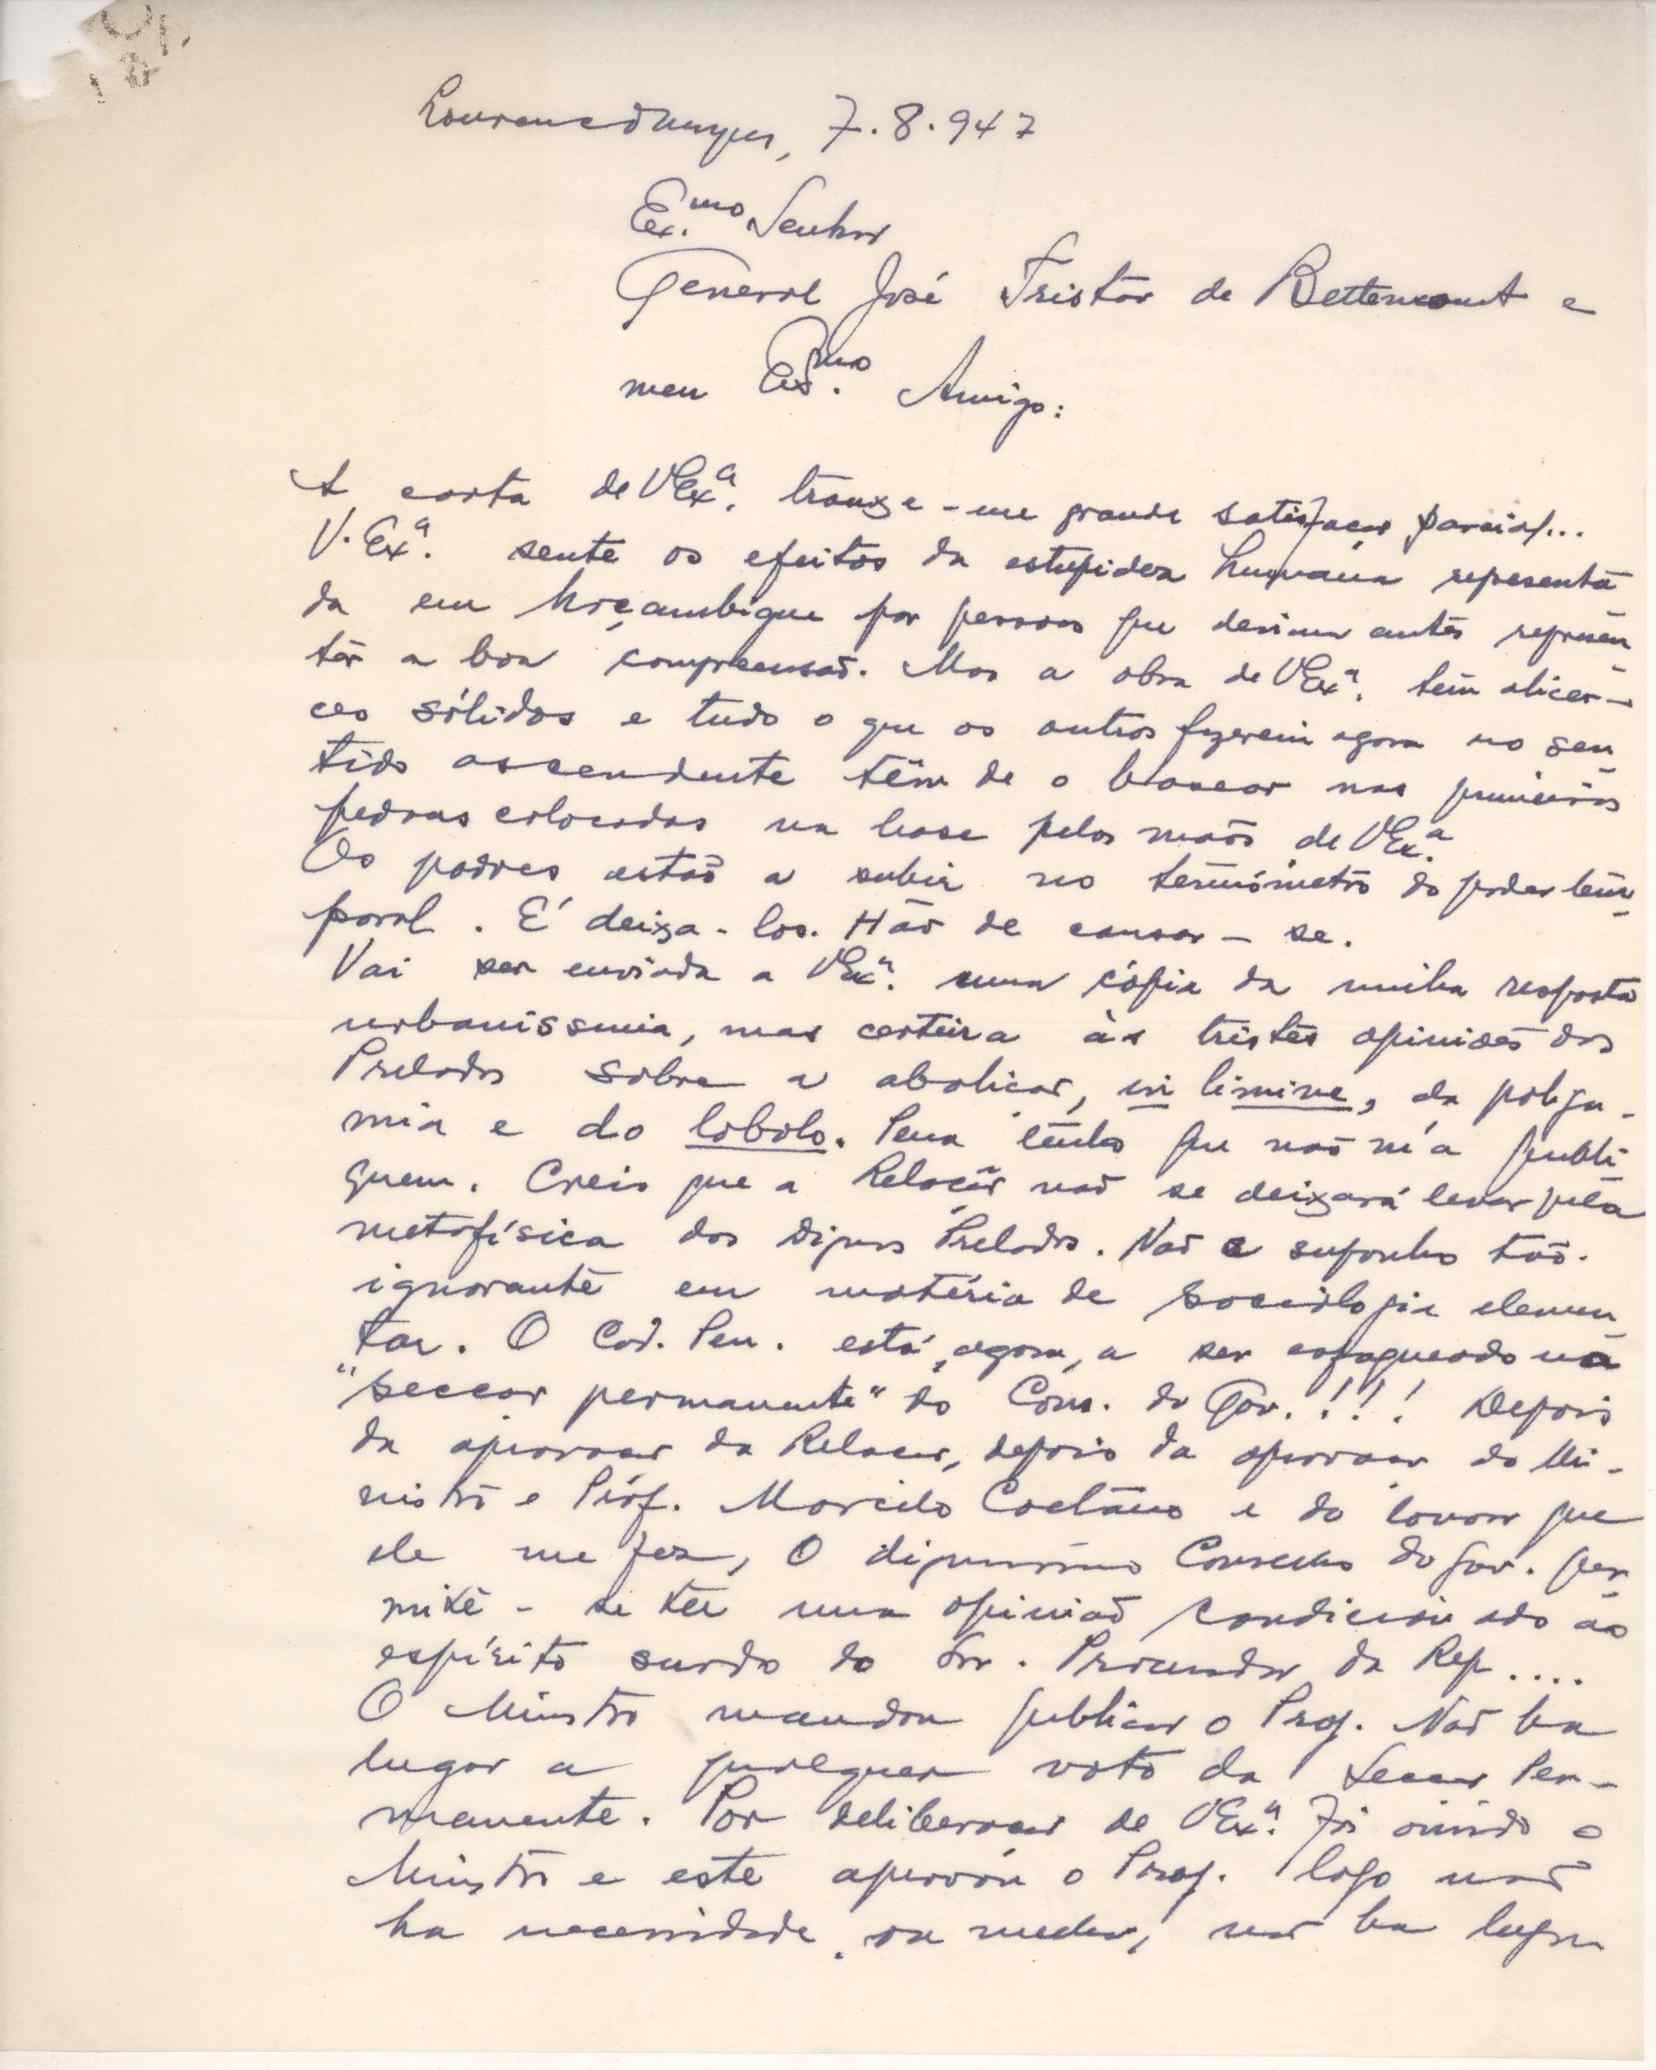 Lourenço Marques, 7.8.947
Ex.mo Senhor
General José Tristão de Bettencourt e
meu Ex.mo Amigo:
A carta de VExª. trouxe-me grande satisfação parcial...
V. Exª. sente os efeitos da estupidez humana representa
da em Moçambique por pessoas que deviam antes represen
tar a boa compreensão. Mas a obra de VExª. tem alicer-
ces sólidos e tudo o que os outros fizerem agora no sen
tido ascendente têm de o basear nas primeiras
pedras colocadas na base pelas mãos de VExª.
Os padres estão a subir no termómetro do poder tem
poral. É deixa-los. Hão de cansar-se.
Vai ser enviada a VExª. uma cópia da minha resposta
urbaníssima, mas certeira às tristes opiniões dos
Prelados sobre a abolição, in limine, da poliga-
mia e do lobolo. Pena tenho que não m'a publi
quem. Creio que a Relação não se deixará levar pela
metafísica dos dignos Prelados. Não a suponho tão
ignorante em matéria de sociologia elemen
tar. O Cod. Pen. está, agora, a ser esfaqueado na
"secção permanente" do Cons. do Gov.!!! Depois
da aprovação da Relação, depois da aprovação do Mi-
nistro e Prof. Marcelo Caetano e do louvor que
ele me fez, O digníssimo Conselho do Gov. per
mite-se ter uma opinião condicionado ao
espírito surdo do Snr. Procurador da Rep....
O Ministro mandou publicar o Proj. Não ha
lugar a qualquer voto da Secção Per-
manente. Por deliberação de VExª. foi ouvido o
Ministro e este aprovou o Proj. logo não
ha necessidade, ou melhor, não ha lugar